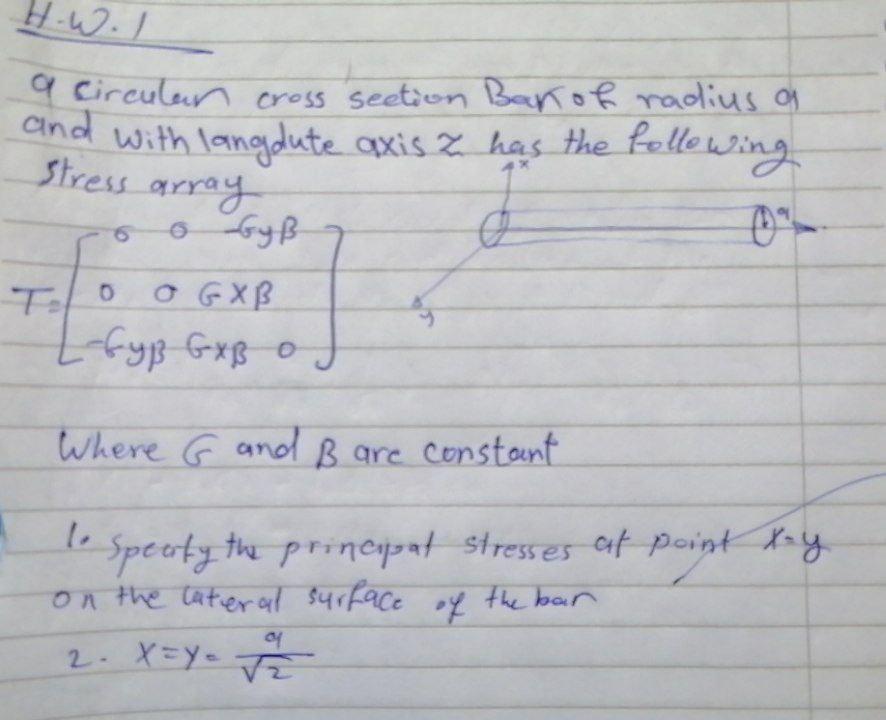 H.W.1
a circular cross section Bar of radius a
and with langdute axis z has the following
stress array
x
0 0 -GyB
a
T= 0 0 GxB
y
-GyB GxB 0
Where G and B are constant
1. Specify the principal stresses at point x=y
on the lateral surface of the bar
2. x=y= a/√2